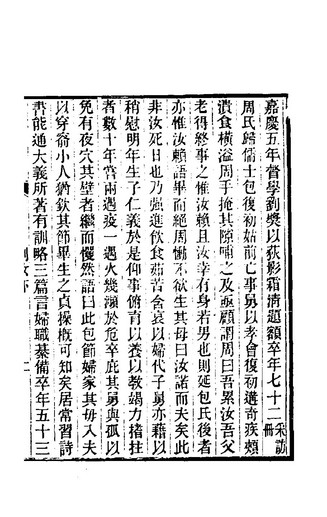 嘉慶五年督學劉獎以荻影霜清題額卒年七十二采訪冊
周氏歸儒士包復初姑前亡事舅以孝會復初遘奇疾頰
潰食橫溢周手掩其隙哺之及亟顧謂周曰吾累汝吾父
老得終事之惟汝賴且汝幸有身若男也則延包氏後者
亦惟汝賴語畢而絕周慟不欲生其母曰汝諾而夫矣此
非汝死日也乃強進飲食茹苦含哀以婦代子舅亦藉以
稍慰明年生子仁義於是仰事俯育以養以教竭力搘拄
者數十年嘗兩遇疫一遇火幾瀕於危卒庇其舅與孤以
免有夜穴其壁者繼而戄然語曰此包節婦家其毋入夫
以穿窬小人猶欽其節畢生之貞操槪可知矣居常習詩
書能通大義所著有訓略三篇言婦職綦備卒年五十三